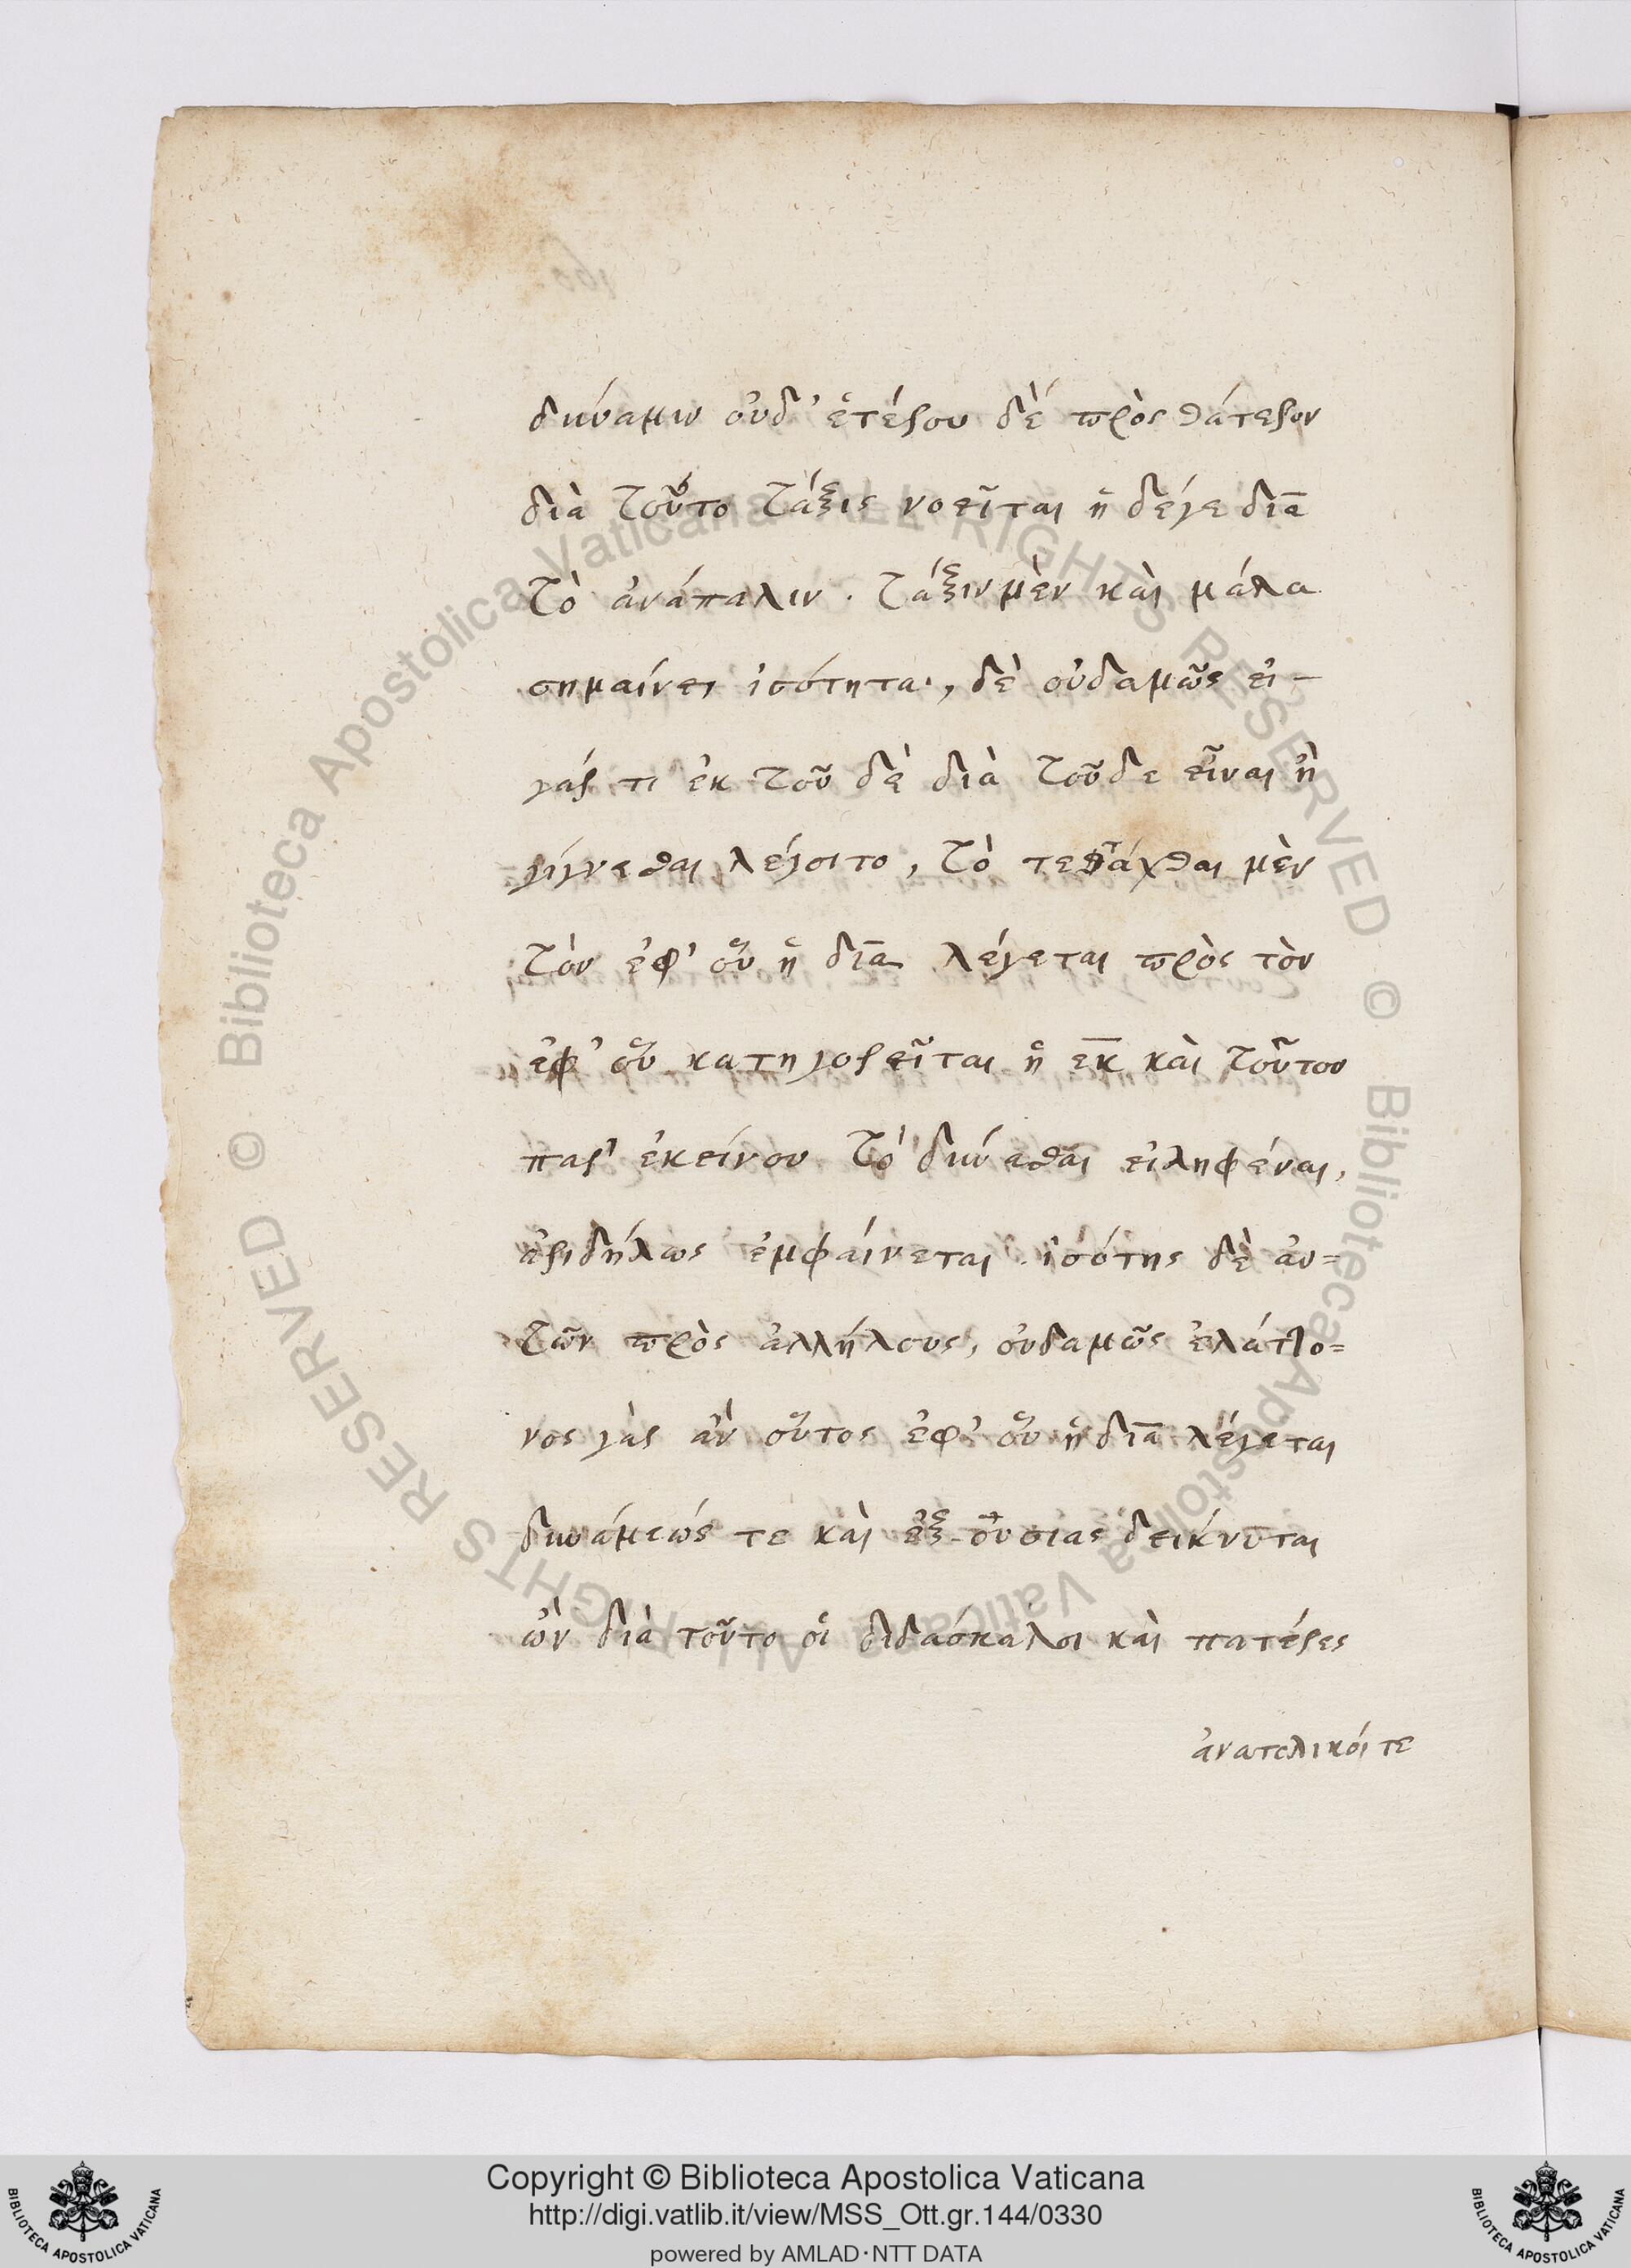 δύναμιν οὐδ' ἑτέρου δὲ πρὸς θάτερον
διὰ τοῦτο τάξις νοεῖται ἢ δέγε δια
τὸ ἀνάπαλιν. τάξιν μὲν καὶ μάλα
σημαίνει ἰσότητα, δὲ οὐδαμῶς εἰ-
γάρ τι ἐκ τοῦ δὲ διὰ τοῦδε εἶναι ἢ
γίγνεσθαι λέγοιτο, τὸ τετάχθαι μὲν
τὸν ἐφ' οὗ ἡ δια λέγεται πρὸς τὸν
ἐφ' οὗ κατηγορεῖται ἡ εκ καὶ τοῦτον
παρ' ἐκείνου τὸ δύνασθαι εἰληφέναι,
ἀριδήλως ἐμφαίνεται. ἰσότης δὲ αὐ=
τῶν πρὸς ἀλλήλους, οὐδαμῶς ἐλάττο=
νος γὰρ ἂν οὗτος ἐφ' οὗ ἡ δια λέγεται
δυνάμεώς τε καὶ ἐξουσίας δείκνυται
ὢν διὰ τοῦτο οἱ διδάσκαλοι καὶ πατέρες
ἀνατολικοί τε
Copyright © Biblioteca Apostolica Vaticana
http://digi.vatlib.it/view/MSS_Ott.gr.144/0330
powered by AMLAD·NTT DATA
BIBLIOTECA APOSTOLICA VATICANA
BIBLIOTECA APOSTOLICA VATICANA
© Biblioteca Apostolica Vaticana ALL RIGHTS RESERVED © Biblioteca Apostolica Vaticana ALL RIGHTS RESERVED